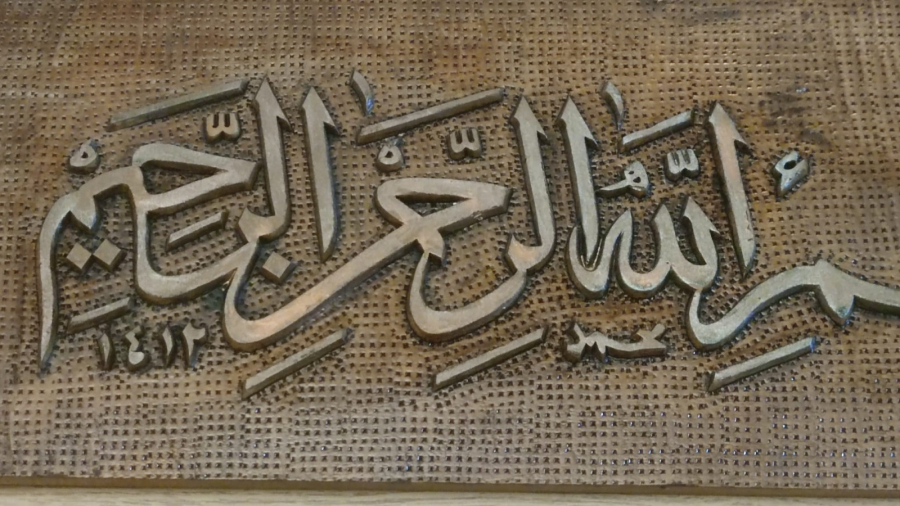 سم الله الرحمن الرحيم
محمد
١٤١٢